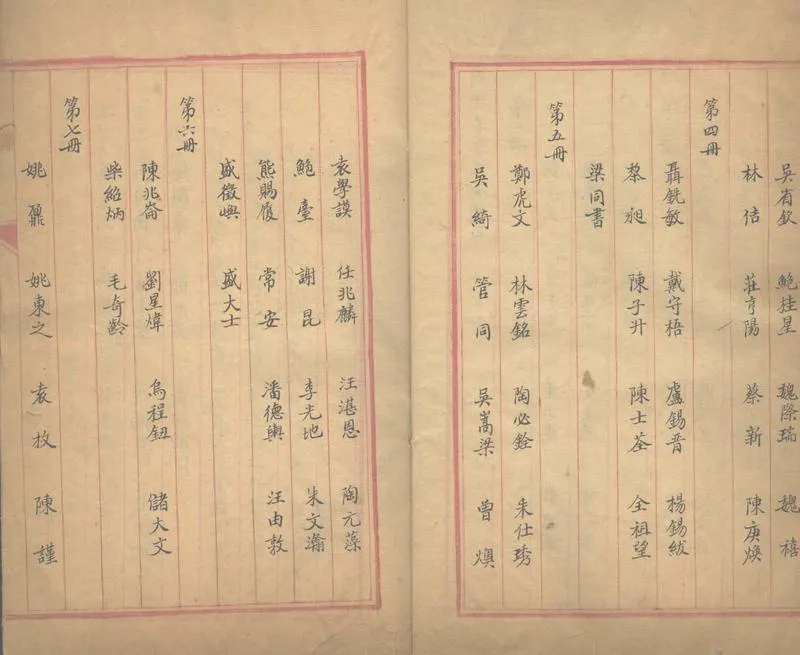 吳省欽 鮑桂星 魏際瑞 魏禧
林佶 莊亨陽 蔡新 陳庚煥
第四冊
聶銑敏 戴守梧 盧錫晋 楊錫紱
黎昶 陳子升 陳士荃 全祖望
梁同書
第五冊
鄭虎文 林雲銘 陶必銓 朱仕琇
吳綺 管同 吳嵩梁 曾燠
袁學謨 任兆麟 汪湛恩 陶元藻
鮑臺 謝昆 李光地 朱文瀚
熊賜履 常安 潘德輿 汪由敦
盛徵璵 盛大士
第六冊
陳兆崙 劉星煒 烏程鈕 儲大文
柴紹炳 毛奇齡
第七冊
姚鼐 姚東之 袁枚 陳謹